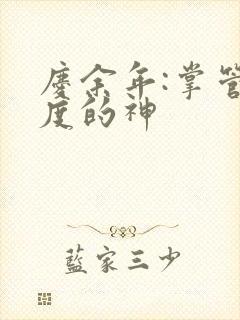 慶余年:掌管
度的神
藍家三少